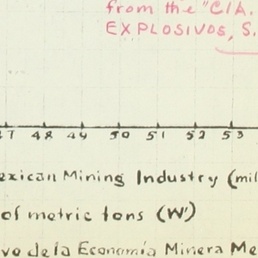 from the "CIA.
EXPLOSIVOS, S.
47 48 49 50 51 52 53
exican Mining Industry (mil
of metric tons (W')
vo de la Economía Minera Me